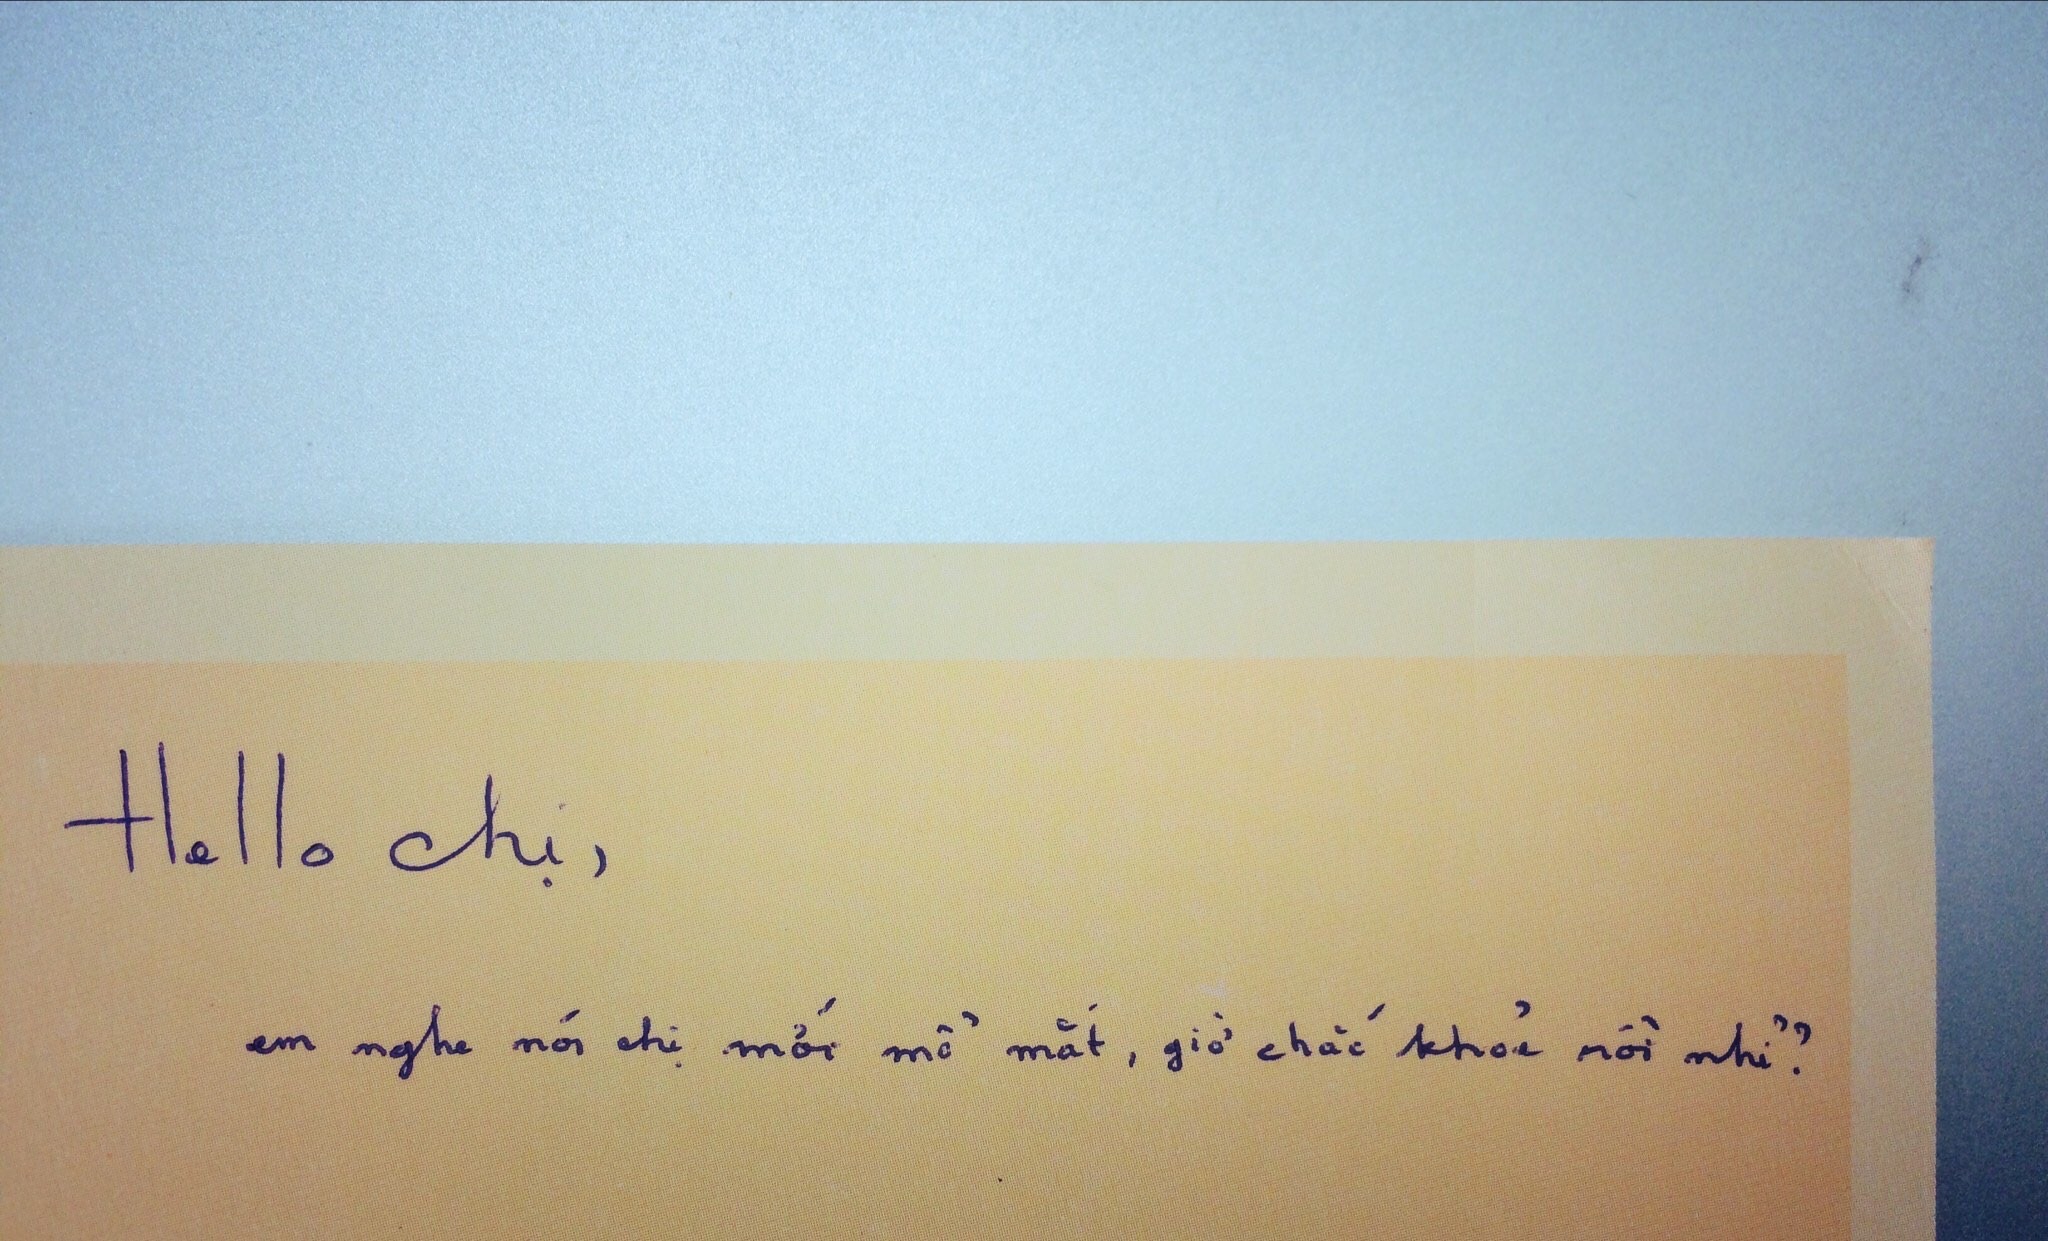 Hello chị,
em nghe nói chị mới mổ mắt, giờ chắc khỏe rồi nhỉ?